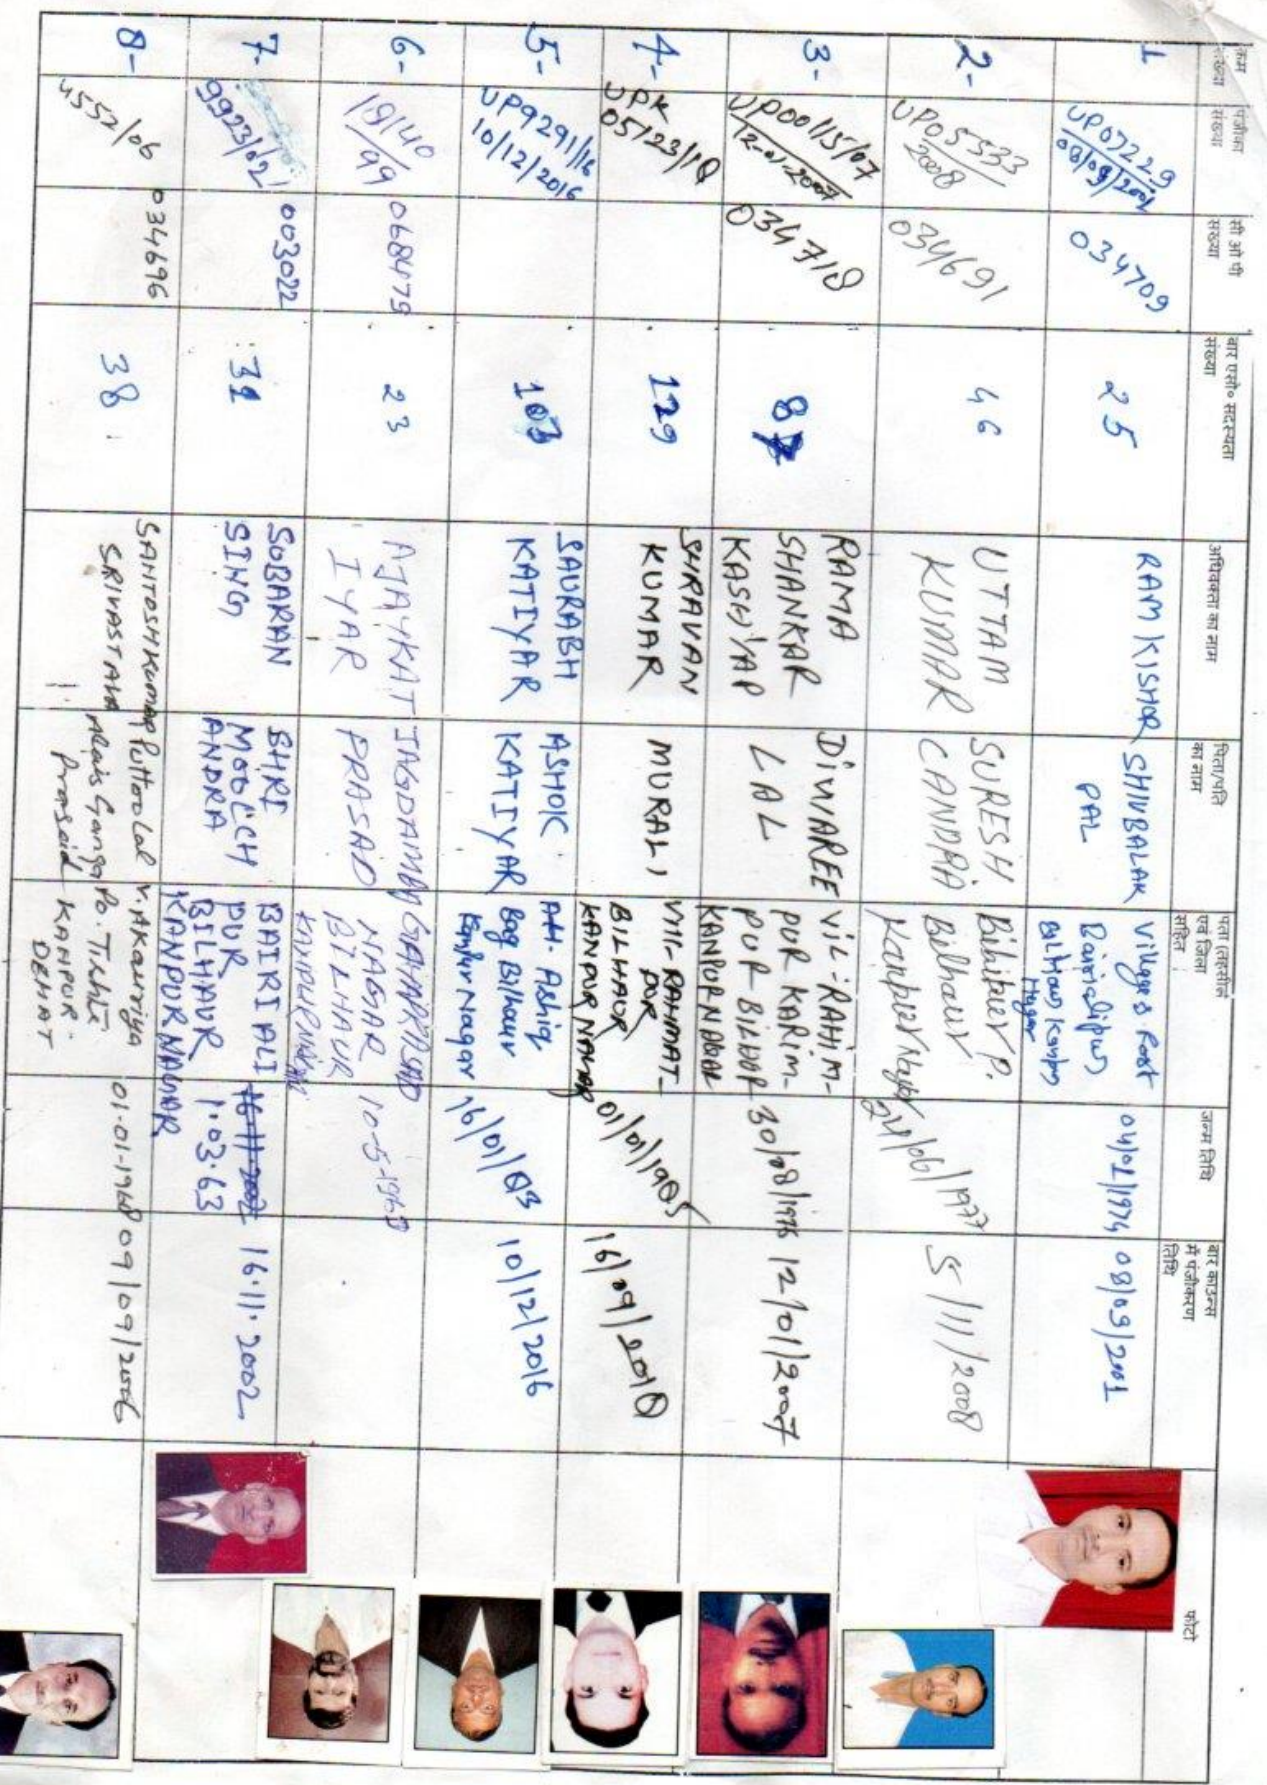 क्रम
संख्या
पंजीका
संख्या
सी ओ पी
संख्या
बार एसो० सदस्यता
संख्या
अधिवक्ता का नाम
पिता/पति
का नाम
पता (तहसील
एवं जिला
सहित
जन्म तिथि
बार काउन्स
में पंजीकरण
तिथि
फोटो
1
UP07229
08/09/2001
034709
25
RAM KISHOR
SHIVBALAK
PAL
Village & Post
Bilhaur Kanpur
Nagar
04/01/1974
08/09/2001
2-
UP05533
2008
034691
46
UTTAM
KUMAR
SURESH
CANDRA
Bibipur P.
Bilhaur
Kanpur Nagar
24/06/1977
5/11/2008
3-
UP00115/07
12-01-2007
034718
87
RAMA
SHANKAR
KASHYAP
DIWAREE
LAL
VIL-RAHIM-
PUR KARIM-
PUR-BILHAUR
KANPUR NAGAR
30/08/1976
12/01/2007
4-
UPK
05123/10
129
SHRAVAN
KUMAR
MURALI
VILL-RAHMAT-
PUR
BILHAUR
KANPUR NAGAR
01/01/1985
16/09/2010
5-
UP9291/16
10/12/2016
103
SAURABH
KATIYAR
ASHOK
KATIYAR
AH. Ashiq
Bag Bilhaur
Kanpur Nagar
16/01/83
10/12/2016
6-
19140
/99
068479
23
AJAYKAT
IYAR
JAGDAMBA
PRASAD
NAGAR
BILHAUR
KANPUR NAGAR
10-5-1968
7-
9923/02
003022
31
SOBARAN
SING
SHRI
MOOLCH
ANDRA
BAIRI ALI
PUR
BILHAUR
KANPUR NAGAR
16-11-2002
1.03.63
16.11.2002
8-
4552/06
034696
38
SANTOSH KUMAR
SRIVASTAVA
Puttoolal
Alais Ganga
Prasaid
V. Akaurriya
Po. Tishti
KANPUR-
DEHAT
01-01-1968
09/09/2006